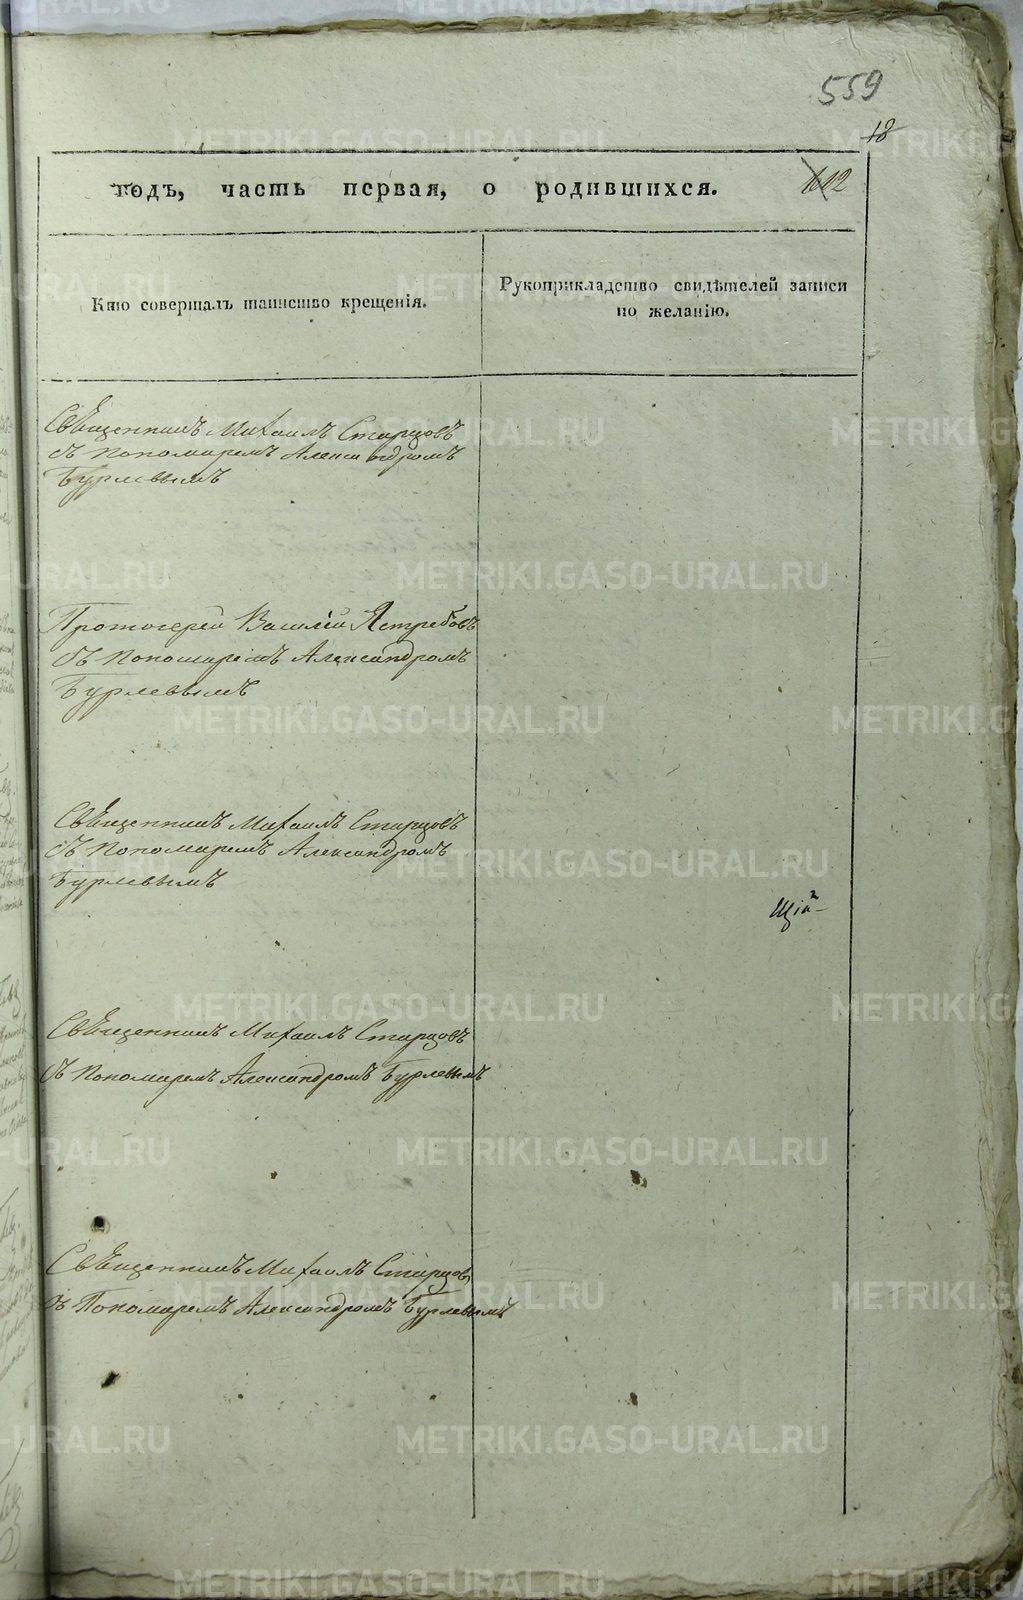 559
18
годъ, часть первая, о родившихся.
Кто совершалъ таинство крещенія.
Рукоприкладство свидѣтелей записи
по желанію.
Священникъ Михаилъ Старцовъ
съ Пономаремъ Александромъ
Бурлевымъ
Протоіерей Василій Ястребовъ
съ Пономаремъ Александромъ
Бурлевымъ
Священникъ Михаилъ Старцовъ
съ Пономаремъ Александромъ
Бурлевымъ
щій
Священникъ Михаилъ Старцовъ
съ Пономаремъ Александромъ Бурлевымъ
Священникъ Михаилъ Старцовъ
съ Пономаремъ Александромъ Бурлевымъ
METRIKI.GASO-URAL.RU